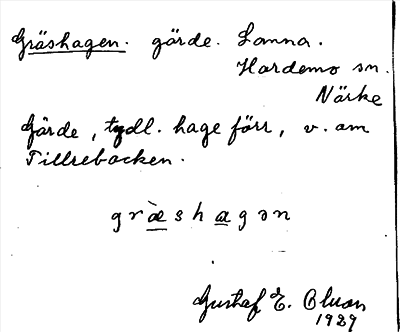 Gräshagen. gärde. Lanna.
Hardemo sn.
Närke
Gärde, tydl. hage förr, v. om
Tillrebacken.
græ̀shagən
Gustaf E.
1929